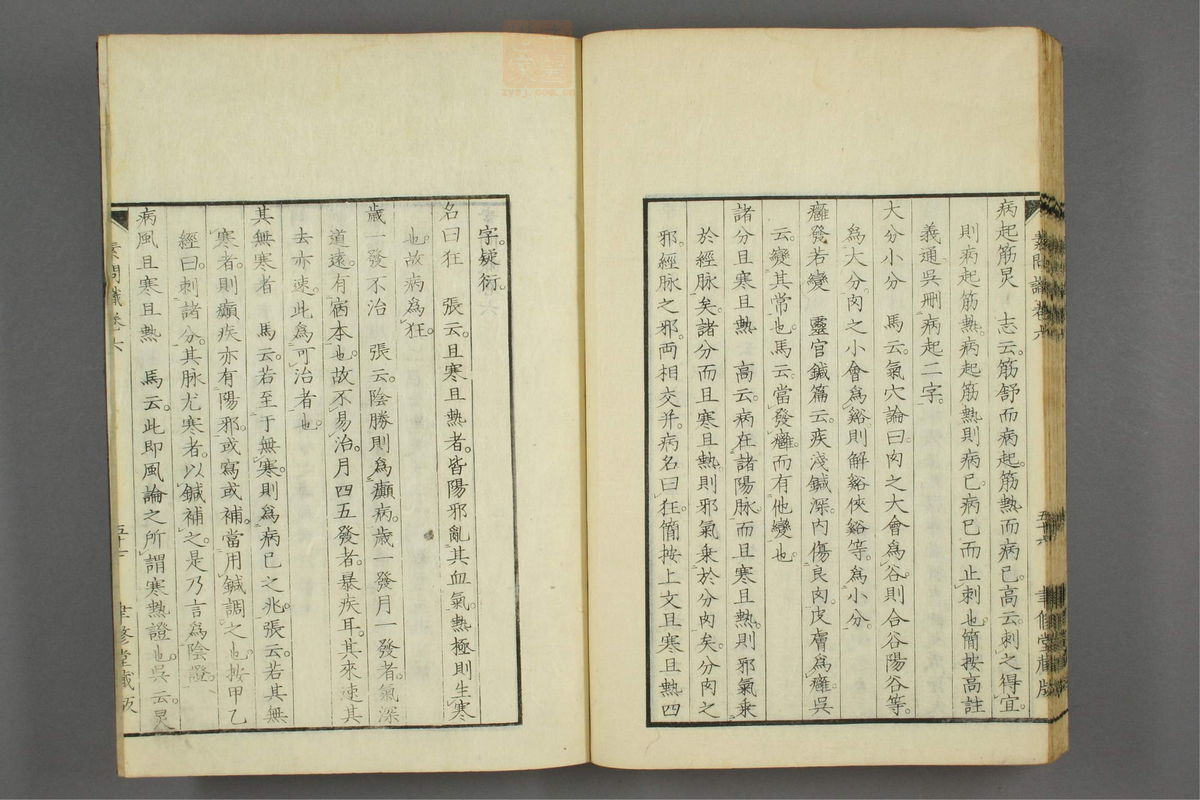 病起筋炅　志云。筋舒而病起。筋熱而病已。高云。刺之得宜。
則病起筋熱。病起筋熱則病已。病已而止刺也。簡按高註
義通。吳刪病起二字。
大分小分　馬云。氣穴論曰。肉之大會爲谷。則合谷陽谷等。
爲大分。肉之小會爲谿。則解谿俠谿等。爲小分。
癰發若變　靈官鍼篇云。疾淺鍼深。內傷良肉。皮膚爲癰。吳
云。變其常也。馬云。當發癰。而有他變也。
諸分且寒且熱　高云。病在諸陽脉。而且寒且熱。則邪氣乗
於經脉矣。諸分而且寒且熱。則邪氣乗於分肉矣。分肉之
邪。經脉之邪。兩相交幷。病名曰狂。簡按上文且寒且熱四
素問識卷六
聿修堂藏版
字。疑衍。
名曰狂　張云。且寒且熱者。皆陽邪亂其血氣。熱極則生寒
也。故病爲狂。
歲一發不治　張云。陰勝則爲癲病。歲一發。月一發者。氣深
道遠。有宿本也。故不易治。月四五發者。暴疾耳。其來速。其
去亦速。此爲可治者也。
其無寒者　馬云。若至于無寒。則爲病已之兆。張云。若其無
寒者。則癲疾亦有陽邪。或寫或補。當用鍼調之也。按甲乙
經曰。刺諸分。其脉尤寒者。以鍼補之。是乃言爲陰證。
病風且寒且熱　馬云。此即風論之所謂寒熱證也。吳云。炅
素問識卷六
聿修堂藏版